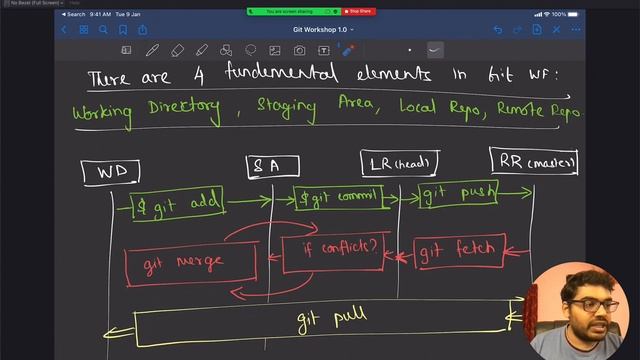 No Bezel (Full Screen)
Help
Search 9:41 AM Tue 9 Jan
You are screen sharing Stop Share
100%
Git Workshop 1.0
There are 4 fundemental elements in Git WF:
Working Directory, Staging Area, Local Repo, Remote Repo
WD SA LR(head) RR(master)
$ git add $ git commit git push
git merge if conflicts? git fetch
git pull